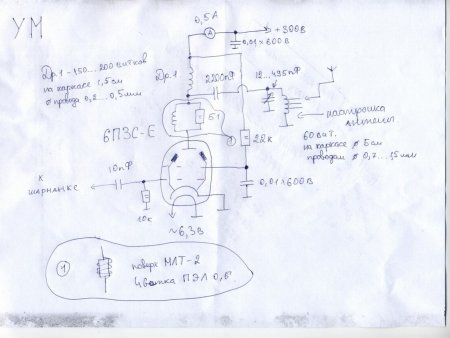 УМ
0,5А
+300В
0,01х600В
Др.1 - 150...200 витков
на каркасе 1,5см
ø провода 0,2...0,5мм
Др.1
2200пФ
12...495пФ
настройка
антенны
51
①
6П3С-Е
22к
60 вит.
на каркасе ø 5см
проводом ø 0,7...1,5мм
к
шарманке
10пФ
0,01х600В
10к
~6,3В
①
поверх МЛТ-2
4 витка ПЭЛ 0,6